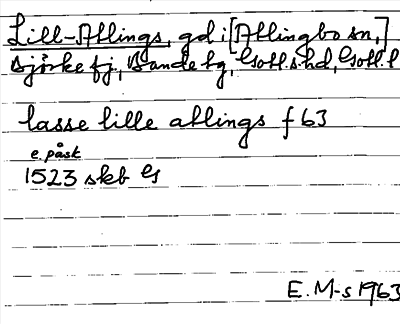 Lill-Atlings, gd i [Atlingbo sn,]
Bjärke fj, Bande tg, Gotl.s.hd, Gotl.l
lasse lille atlings f 63
e. påsk
1523 skb G
E. M-s 1963